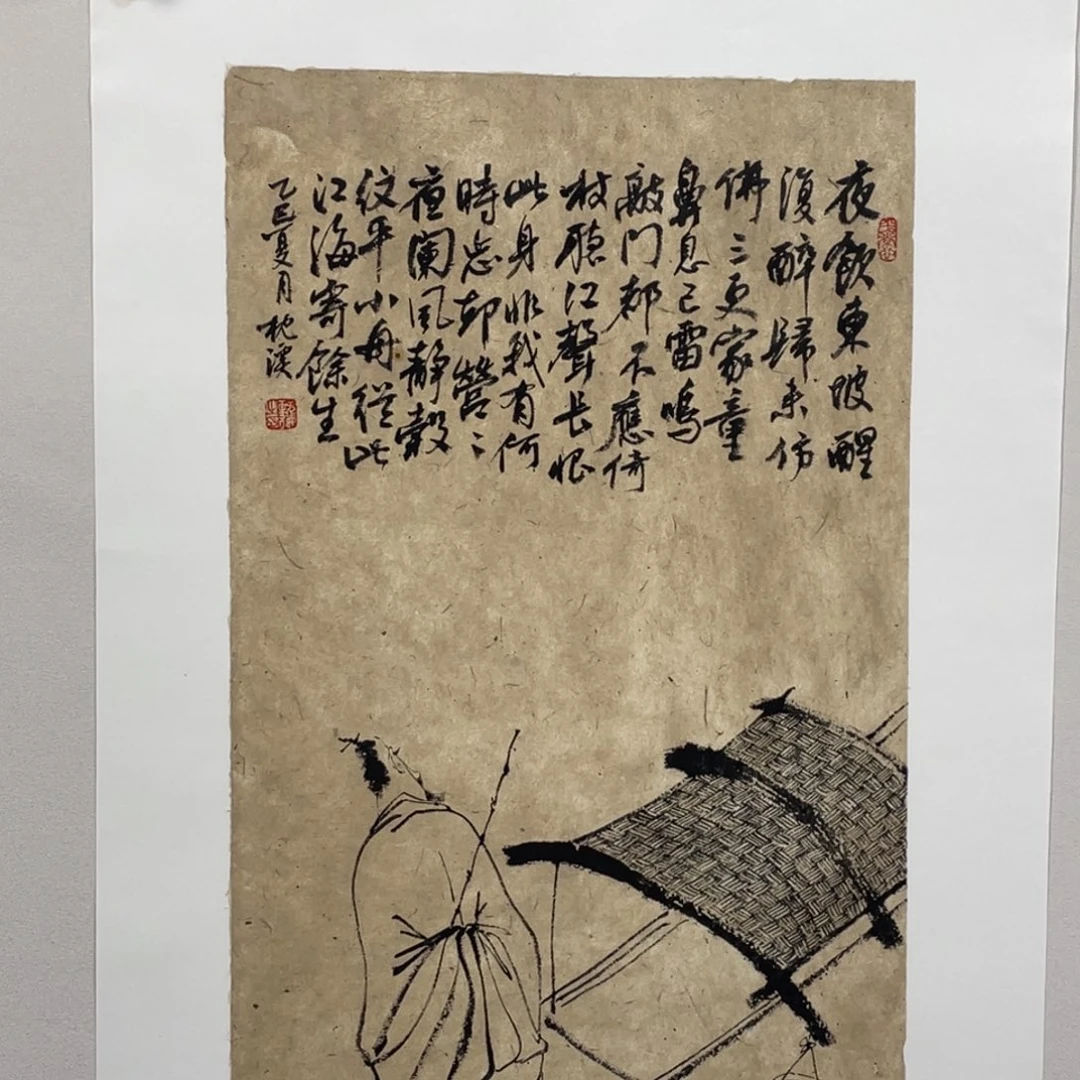 夜飲東坡醒
復醉歸來仿
佛三更家童
鼻息已雷鳴
敲門都不應倚
杖聽江聲長恨
此身非我有何
時忘卻營〻
夜闌風靜縠
紋平小舟從此
江海寄餘生
乙巳夏月枕溪